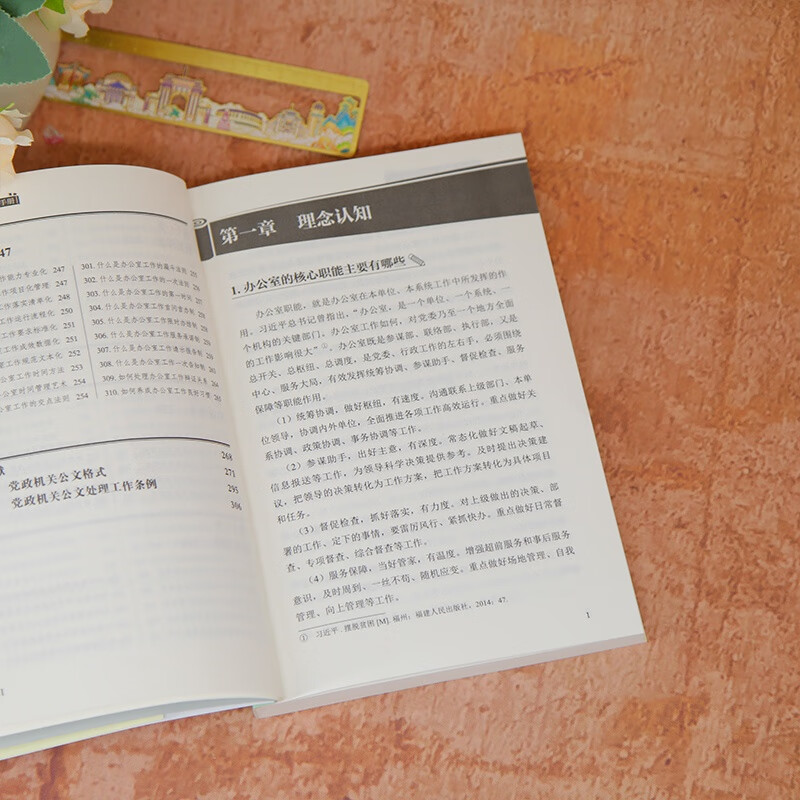 手册
47
能力专业化 247
项目化管理 247
工作落实清单化 248
工作运行流程化 250
工作要求标准化 251
室工作成效数据化 251
室工作规范文本化 252
公室工作时间方法 253
公室时间管理艺术 254
公室工作的交点法则 254
301. 什么是办公室工作的漏斗法则 255
302. 什么是办公室工作的一次法则
303. 什么是办公室工作的第一时间
304. 什么是办公室工作首问责任制
305. 什么是办公室工作限时办结制
306. 什么是办公室工作服务承诺制
307. 什么是办公室工作请示报告制
308. 什么是办公室工作一次告知制
309. 如何处理办公室工作辩证关系
310. 如何养成办公室工作良好习惯
献 268
党政机关公文格式 271
党政机关公文处理工作条例 295
306
第一章 理念认知
1. 办公室的核心职能主要有哪些
办公室职能，就是办公室在本单位、本系统工作中所发挥的作
用。习近平总书记曾指出，“办公室，是一个单位、一个系统、一
个机构的关键部门。办公室工作如何，对党委乃至一个地方全面
的工作影响很大”①。办公室既是参谋部、联络部、执行部，又是
总开关、总枢纽、总调度，是党委、行政工作的左右手，必须围绕
中心、服务大局，有效发挥统筹协调、参谋助手、督促检查、服务
保障等职能作用。
（1）统筹协调，做好枢纽，有速度。沟通联系上级部门、本单
位领导，协调内外单位，全面推进各项工作高效运行。重点做好关
系协调、政策协调、事务协调等工作。
（2）参谋助手，出好主意，有深度。常态化做好文稿起草、
信息报送等工作，为领导科学决策提供参考。及时提出决策建
议，把领导的决策转化为工作方案，把工作方案转化为具体项目
和任务。
（3）督促检查，抓好落实，有力度。对上级做出的决策、部
署的工作、定下的事情，要雷厉风行、紧抓快办。重点做好日常督
查、专项督查、综合督查等工作。
（4）服务保障，当好管家，有温度。增强超前服务和事后服务
意识，及时周到、一丝不苟、随机应变。重点做好场地管理、自我
管理、向上管理等工作。
① 习近平. 摆脱贫困[M]. 福州：福建人民出版社，2014：47.
1